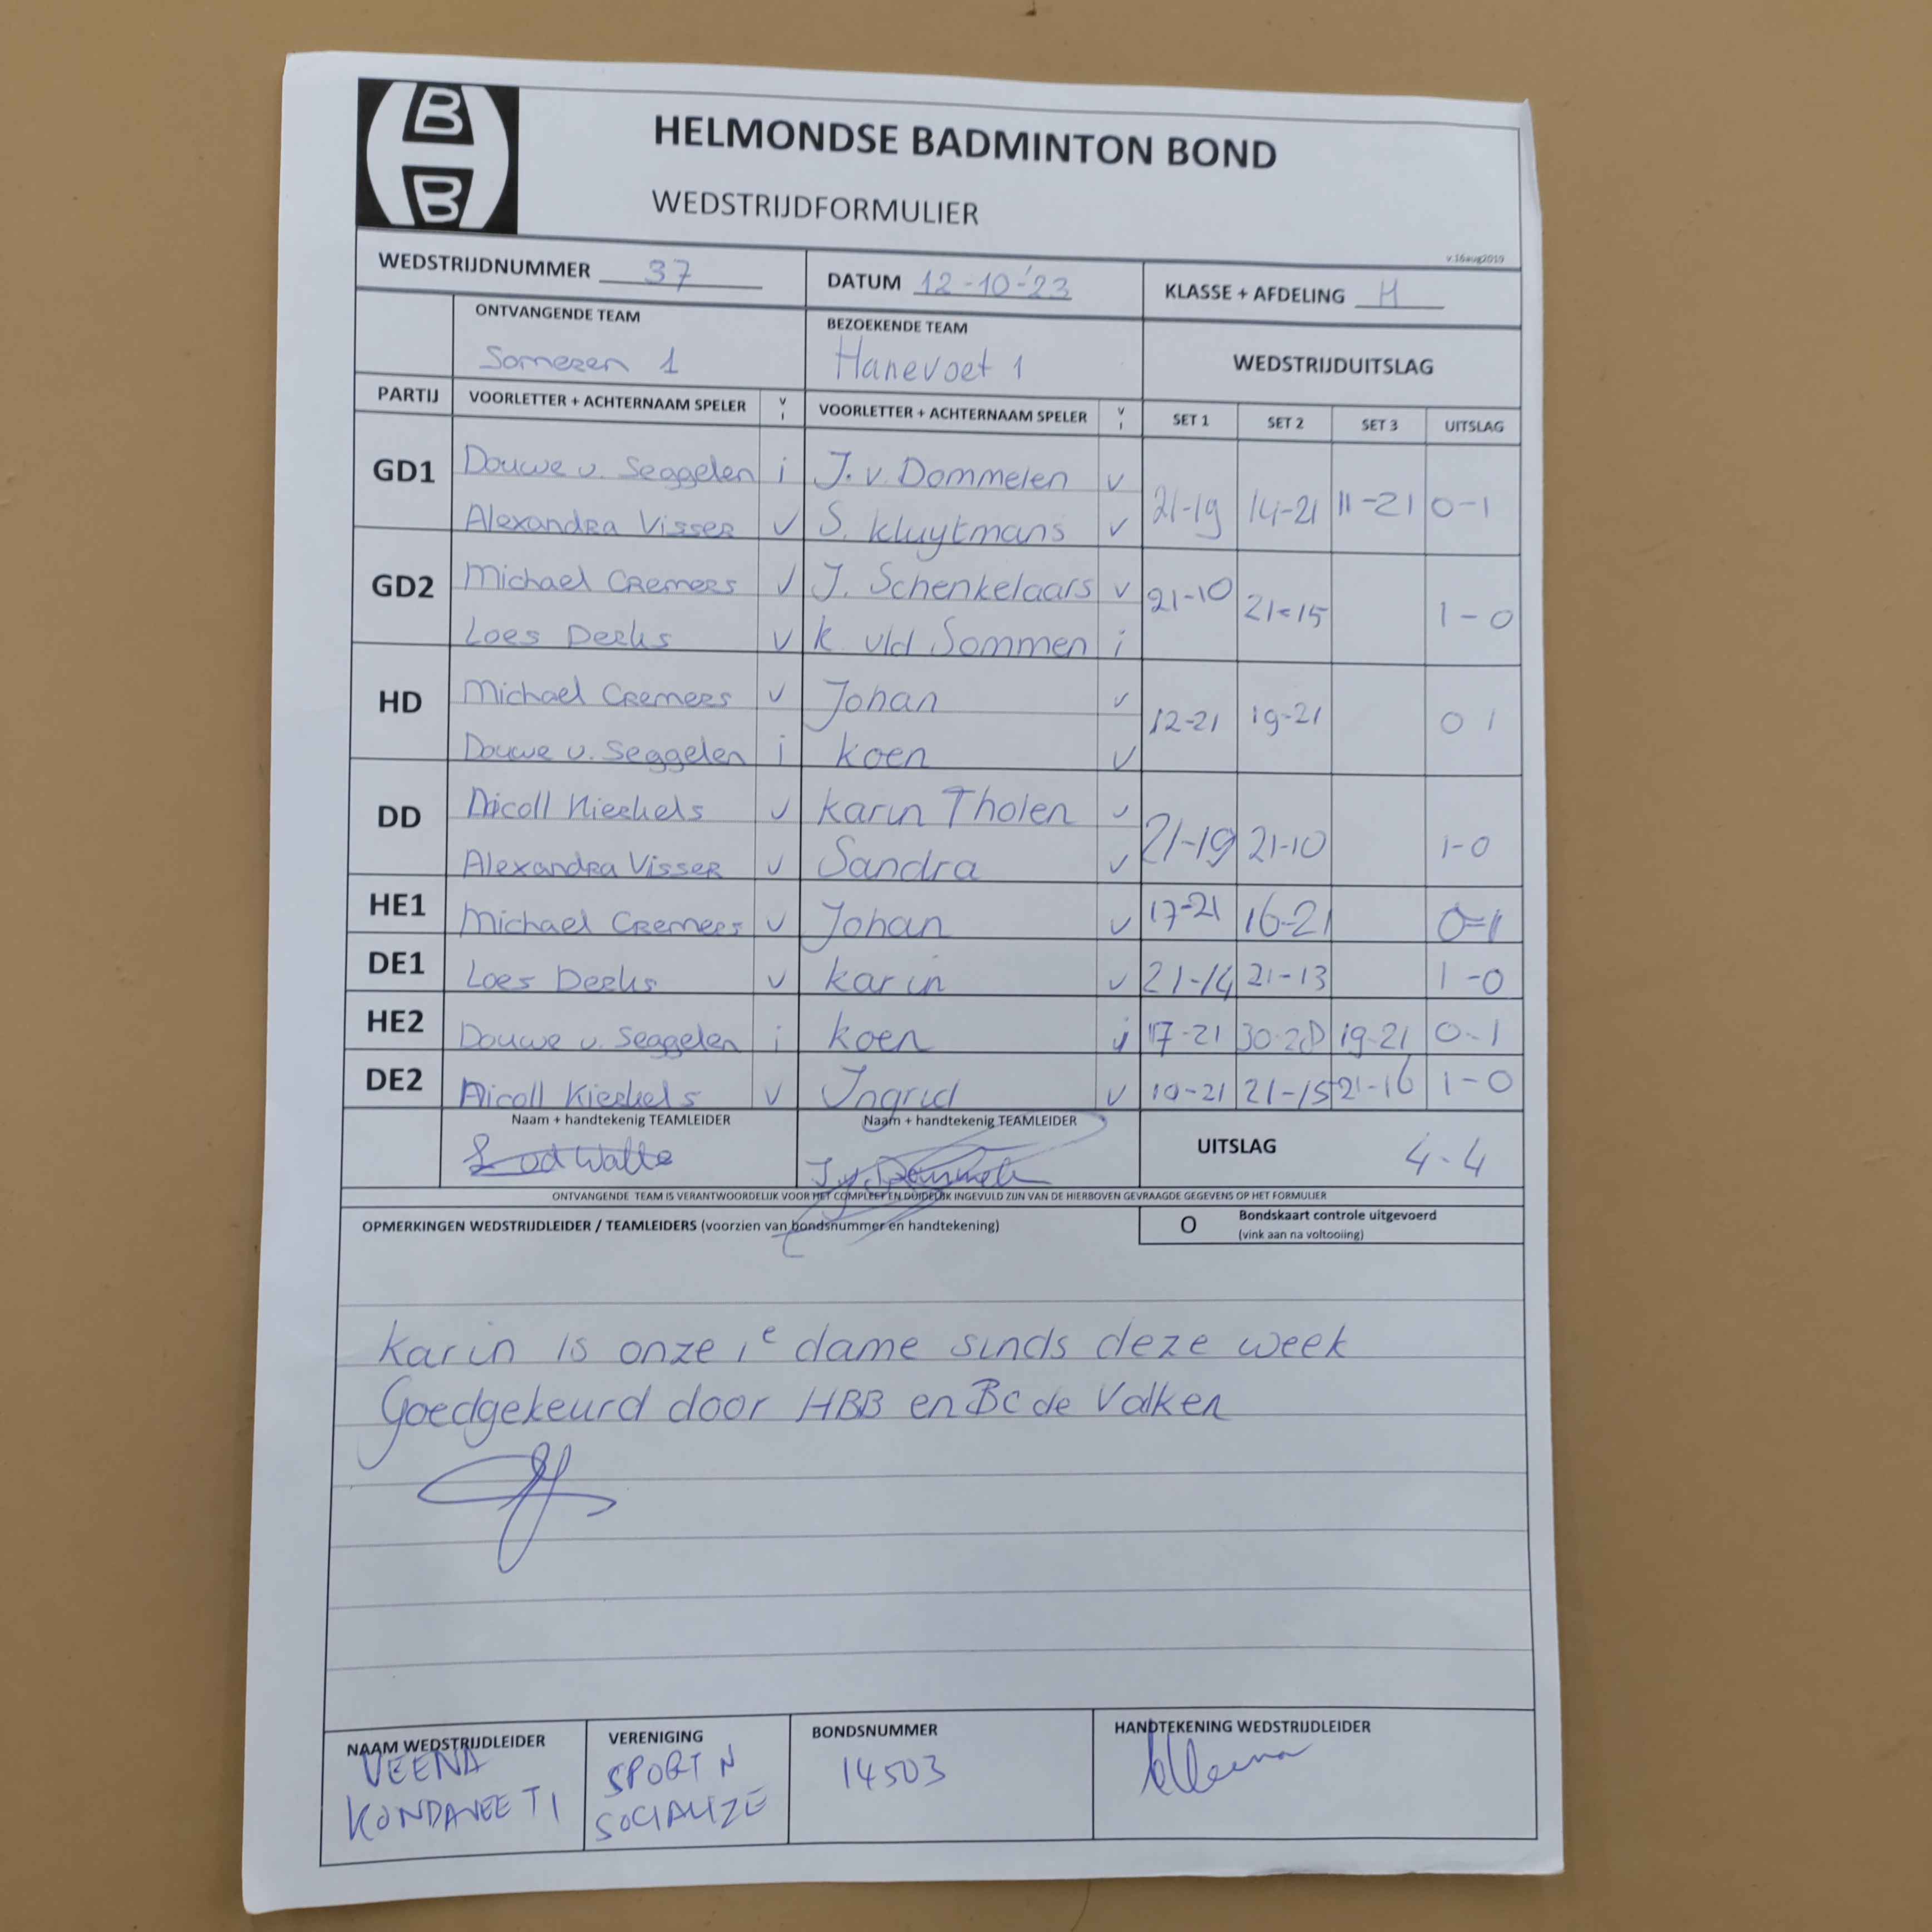 B
B
HELMONDSE BADMINTON BOND
WEDSTRIJDFORMULIER
v.16aug2019
WEDSTRIJDNUMMER 37 DATUM 12-10-'23 KLASSE + AFDELING H
ONTVANGENDE TEAM BEZOEKENDE TEAM WEDSTRIJDUITSLAG
Someren 1 Hanevoet 1
PARTIJ VOORLETTER + ACHTERNAAM SPELER V I VOORLETTER + ACHTERNAAM SPELER V I SET 1 SET 2 SET 3 UITSLAG
GD1 Douwe v. Seggelen i J. v. Dommelen v 21-19 14-21 11-21 0-1
Alexandra Visser v S. Kluytmans v
GD2 Michael Cremers v J. Schenkelaars v 21-10 21-15 1-0
Loes Derks v K vld Sommen i
HD Michael Cremers v Johan v 12-21 19-21 0 1
Douwe v. Seggelen i Koen v
DD Nicoll Kierkels v Karin Tholen v 21-19 21-10 1-0
Alexandra Visser v Sandra v
HE1 Michael Cremers v Johan v 17-21 16-21 0-1
DE1 Loes Derks v Karin v 21-14 21-13 1-0
HE2 Douwe v. Seggelen i Koen 17-21 30-28 19-21 0-1
DE2 Nicoll Kierkels v Ingrid v 10-21 21-15 21-16 1-0
Naam + handtekenig TEAMLEIDER Naam + handtekenig TEAMLEIDER UITSLAG 4-4
ONTVANGENDE TEAM IS VERANTWOORDELIJK VOOR HET COMPLEET EN DUIDELIJK INGEVULD ZIJN VAN DE HIERBOVEN GEVRAAGDE GEGEVENS OP HET FORMULIER
OPMERKINGEN WEDSTRIJDLEIDER / TEAMLEIDERS (voorzien van bondsnummer en handtekening) O Bondskaart controle uitgevoerd
(vink aan na voltooiing)
Karin is onze 1e dame sinds deze week
Goedgekeurd door HBB en Bc de Valken
NAAM WEDSTRIJDLEIDER VERENIGING BONDSNUMMER HANDTEKENING WEDSTRIJDLEIDER
VEENA SPORT N 14503
KONDAVEETI SOCIALIZE